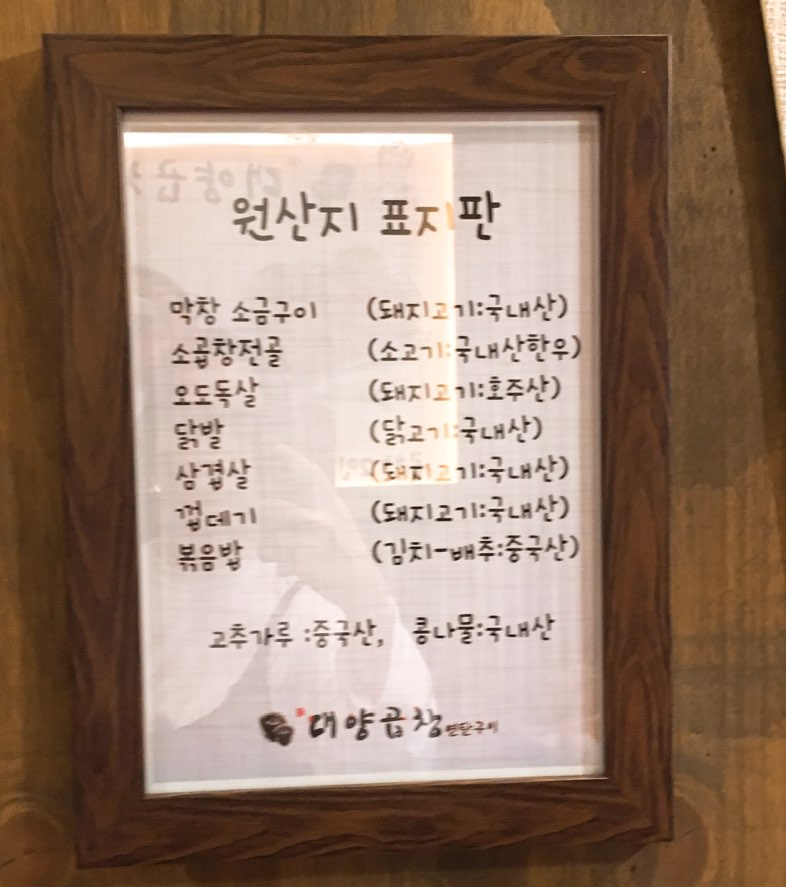 원산지 표지판
막창 소금구이 (돼지고기:국내산)
소곱창전골 (소고기:국내산한우)
오도독살 (돼지고기:호주산)
닭발 (닭고기:국내산)
삼겹살 (돼지고기:국내산)
껍데기 (돼지고기:국내산)
볶음밥 (김치-배추:중국산)
고추가루 :중국산, 콩나물:국내산
태양곱창 연탄구이